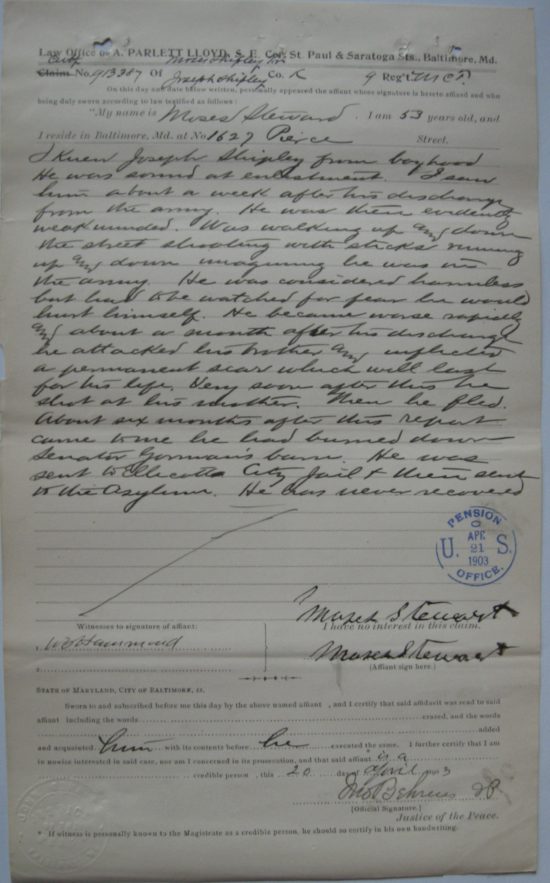 Law Office of A. PARLETT LLOYD, S. E. Cor. St. Paul & Saratoga Sts., Baltimore, Md.
Ctf Moses Shipley Gr
Claim No. 913287 Of Joseph Shipley Co. K 9 Reg't. U C T.
On this day and date below written, personally appeared the affiant whose signature is hereto affixed and who
being duly sworn according to law testified as follows:
"My name is Moses Steward. I am 53 years old, and
I reside in Baltimore, Md. at No 1627 Pierce Street.
I knew Joseph Shipley from boyhood
He was sound at enlistment. I saw
him about a week after his discharge
from the army. He was then evidently
weakminded. Was walking up and down
the street shooting with sticks running
up and down imagining he was in
the army. He was considered harmless
but had to be watched for fear he would
hurt himself. He became worse rapidly
and about a month after his discharge
he attacked his brother and inflicted
a permanent scar which will last
for his life. Very soon after this he
shot at his mother. Then he fled.
About six months after this report
came to me he had burned down
Senator Gorman's barn. He was
sent to Ellicotts City Jail & then sent
to the Asylum. He has never recovered
PENSION
U. S.
APR
21
1903
OFFICE.
Moses Stewart
Witnesses to signature of affiant:
I have no interest in this claim.
Hammond
Moses Stewart
(Affiant sign here.)
STATE OF MARYLAND, CITY OF BALTIMORE, ss.
Sworn to and subscribed before me this day by the above named affiant, and I certify that said affidavit was read to said
affiant including the words erased, and the words
added
and acquainted him with its contents before he executed the same. I further certify that I am
in nowise interested in said case, nor am I concerned in its prosecution, and that said affiant is a
credible person, this 20 day of April 1903
Jno Behrens JP
[Official Signature.]
Justice of the Peace.
* If witness is personally known to the Magistrate as a credible person, he should so certify in his own handwriting.